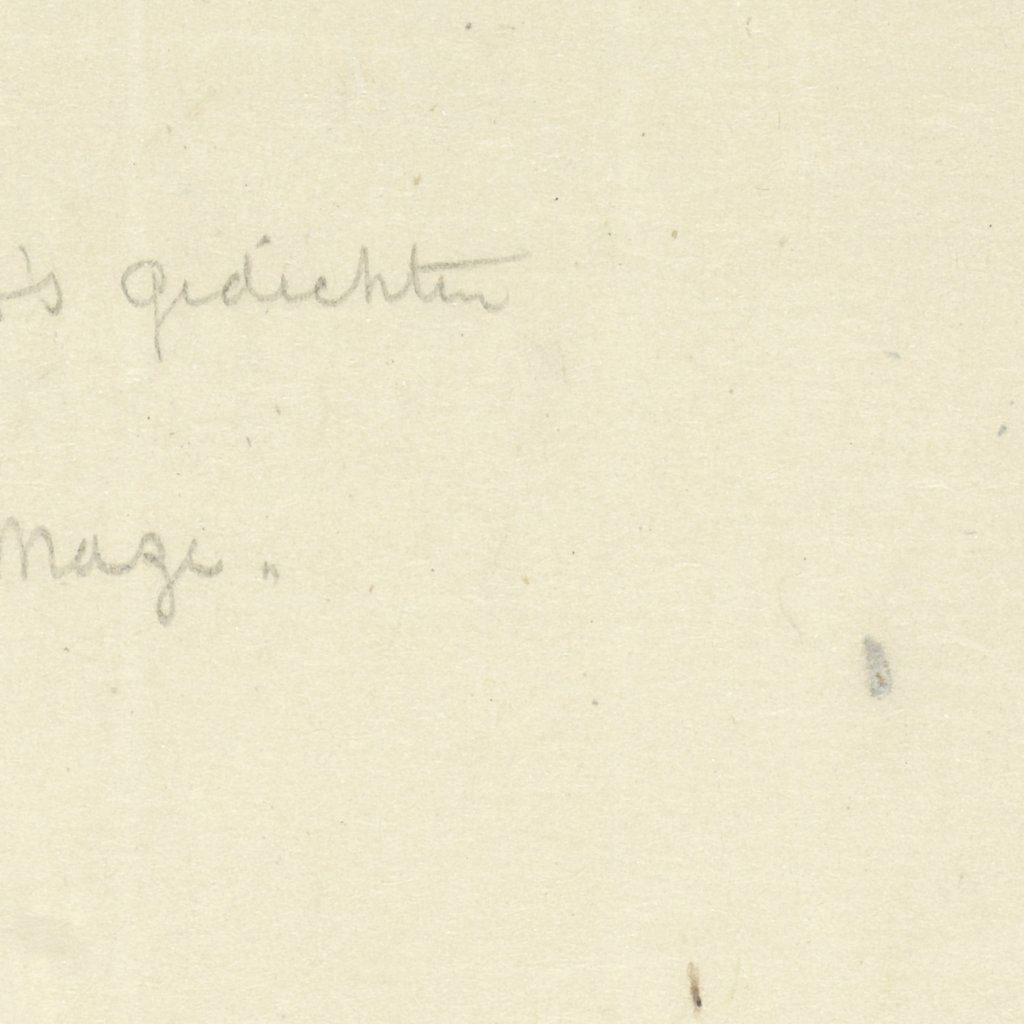 's gedichten
Maze "